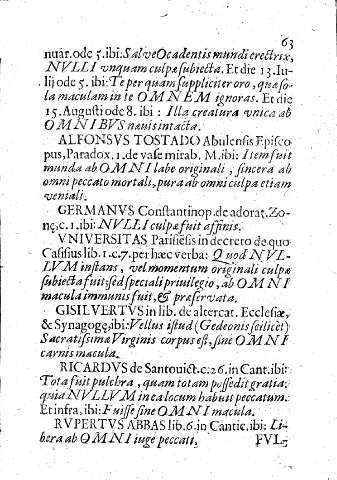 63
nuar. ode 5. ibi: Salve Ocadentis mundi erectrix,
NVLLI vnquam culpæ subiecta. Et die 13. Iu-
lij ode 5. ibi: Te per quam suppliciter oro, quæ so-
la maculam in te OMNEM ignoras. Et die
15. Augusti ode 8. ibi: Illa creatura vnica ab
OMNIBVS næuis intacta.
ALFONSVS TOSTADO Abulensis Episco-
pus, Paradox. 1. de vase mirab. M. ibi: Item fuit
munda ab OMNI labe originali, sincera ab
omni peccato mortali, pura ab omni culpa etiam
veniali.
GERMANVS Constantinop. de adorat. Zo-
nę, c. 1. ibi: NVLLI culpæ fuit affinis.
VNIVERSITAS Parisiẽsis in decreto de quo
Cassius lib. 1. c. 7. per hæc verba: Quod NVL-
LVM instans, vel momentum originali culpæ
subiecta fuit; sed speciali priuilegio, ab OMNI
macula immunis fuit, & præservata.
GISILVERTVS in lib. de altercat. Ecclesiæ,
& Synagogę, ibi: Vellus istud (Gedeonis scilicèt)
Sacratissimæ Virginis corpus est, sine OMNI
carnis macula.
RICARDVS de Santo uict. c. 26. in Cant. ibi:
Tota fuit pulchra, quam totam possedit gratia:
quia NVLLVM in ea locum habuit peccatum.
Et infra, ibi: Fuisse sine OMNI macula.
RVPERTVS ABBAS lib. 6. in Cantic, ibi: Li-
bera ab OMNI iuge peccati.
FVL-